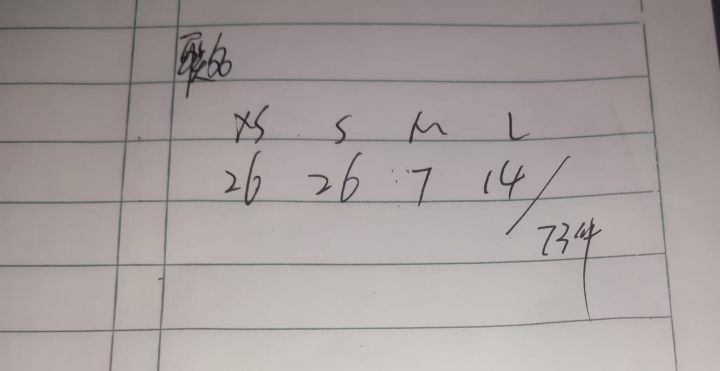 XS S M L
26 26 7 14 /
73件